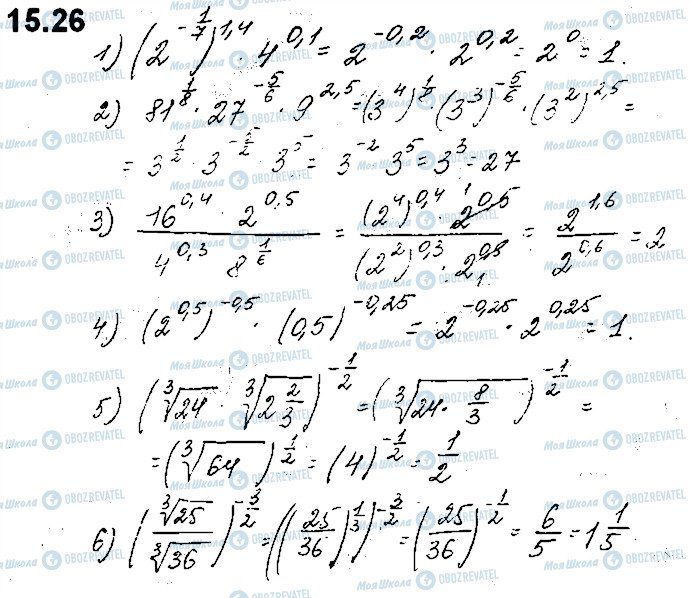 15.26
1) (2^{-1/7})^{1,4} · 4^{0,1} = 2^{-0,2} · 2^{0,2} = 2^0 = 1.
2) 81^{1/8} · 27^{-5/6} · 9^{2,5} = (3^4)^{1/8} · (3^3)^{-5/6} · (3^2)^{2,5} =
= 3^{1/2} · 3^{-5/2} · 3^5 = 3^{-2} · 3^5 = 3^3 = 27
3) (16^{0,4} · 2^{0,5}) / (4^{0,3} · 8^{1/6}) = ((2^4)^{0,4} · 2^{0,5}) / ((2^2)^{0,3} · 2^{0,5}) = 2^{1,6} / 2^{0,6} = 2
4) (2^{0,5})^{-0,5} · (0,5)^{-0,25} = 2^{-0,25} · 2^{0,25} = 1.
5) (∛24 · ∛(2 2/3))^{-1/2} = (∛(24 · 8/3))^{-1/2} =
= (∛64)^{1/2} = (4)^{-1/2} = 1/2
6) (∛25 / ∛36)^{-3/2} = ((25/36)^{1/3})^{-3/2} = (25/36)^{-1/2} = 6/5 = 1 1/5.
МОЯ ШКОЛА OBOZREVATEL